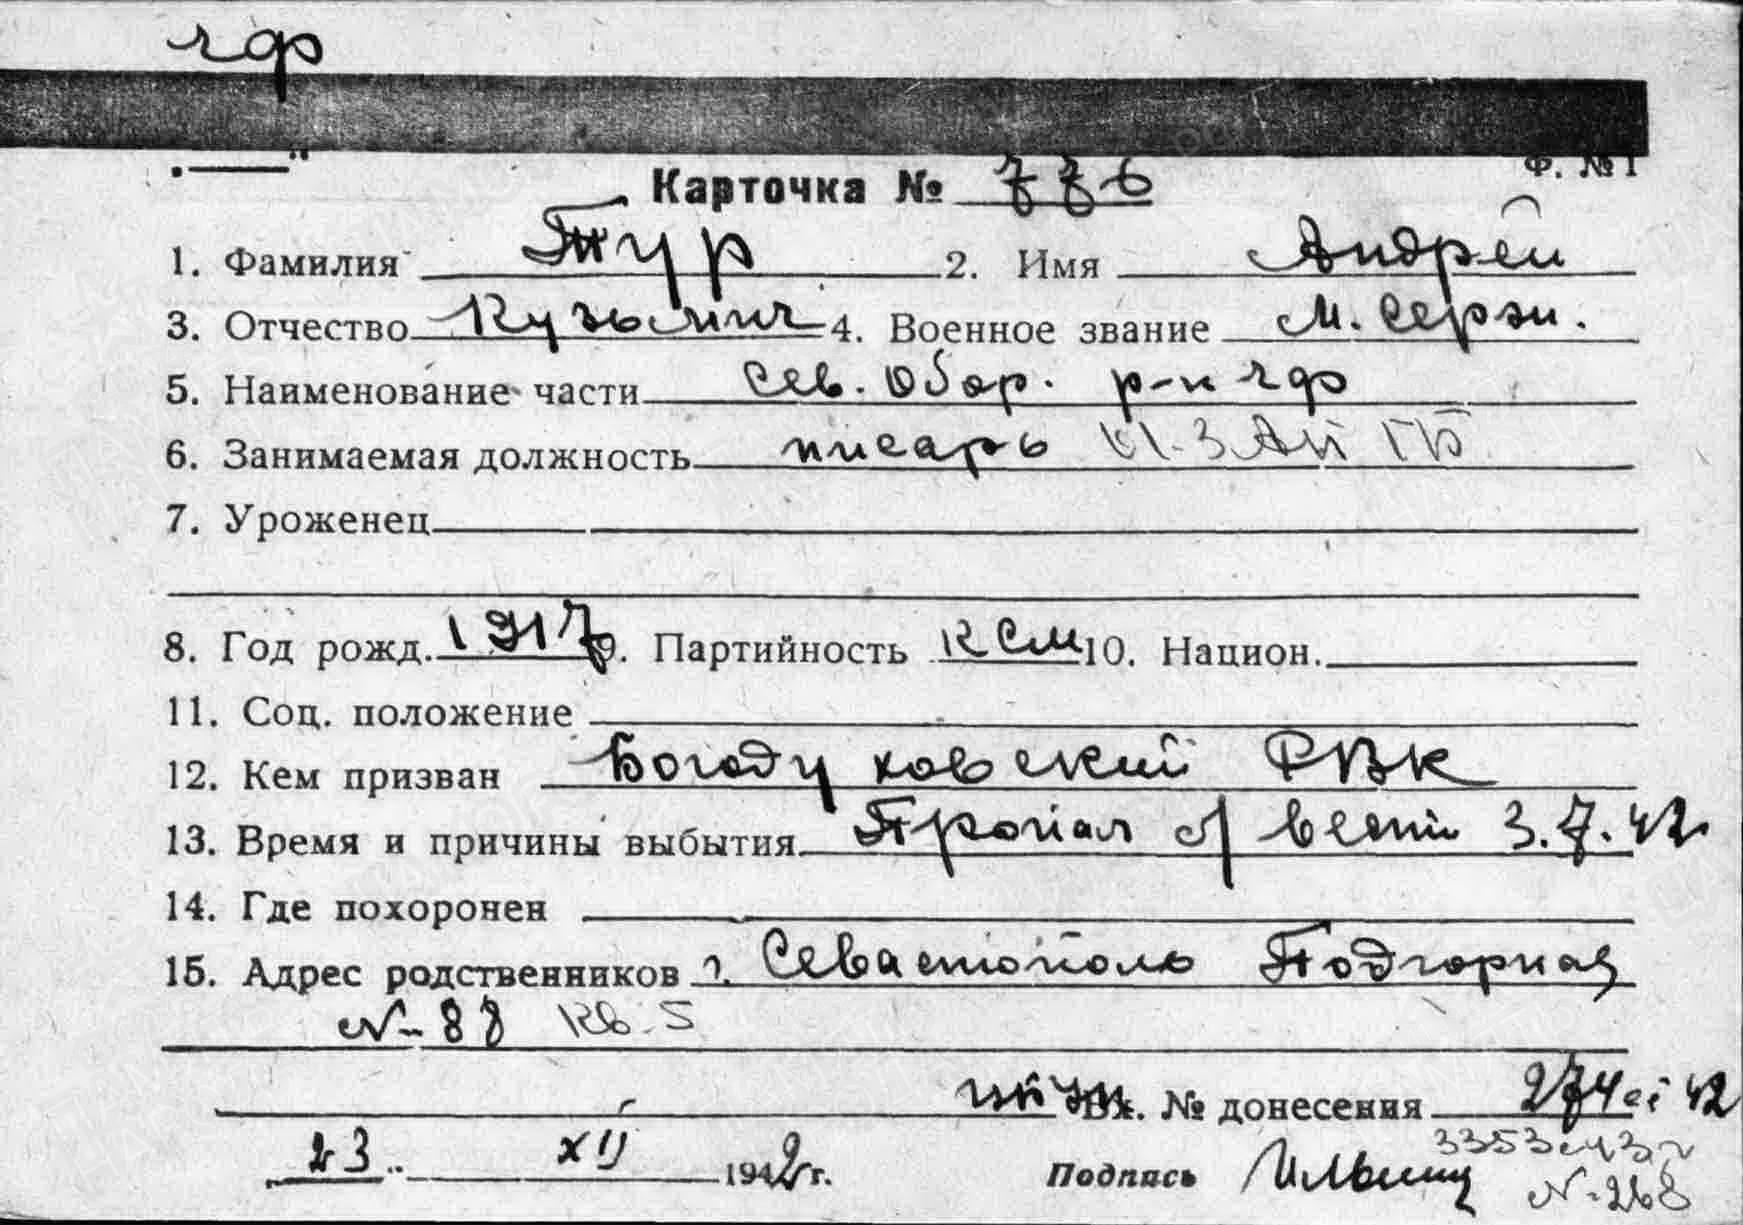 чф
Ф. № 1
Карточка № 776
1. Фамилия Тур 2. Имя Андрей
3. Отчество Кузьмич 4. Военное звание м. серж.
5. Наименование части Сев. Обор. р-н чф
6. Занимаемая должность писарь
7. Уроженец
8. Год рожд. 1917 9. Партийность КСМ 10. Национ.
11. Соц. положение
12. Кем призван Богодуховский РВК
13. Время и причины выбытия Пропал б/вести 3.7.42
14. Где похоронен
15. Адрес родственников г. Севастополь Подгорная
№ 88 кв. 5
Вх. № донесения 274 42
23 XII 1942 г. Подпись
3353
№ 268